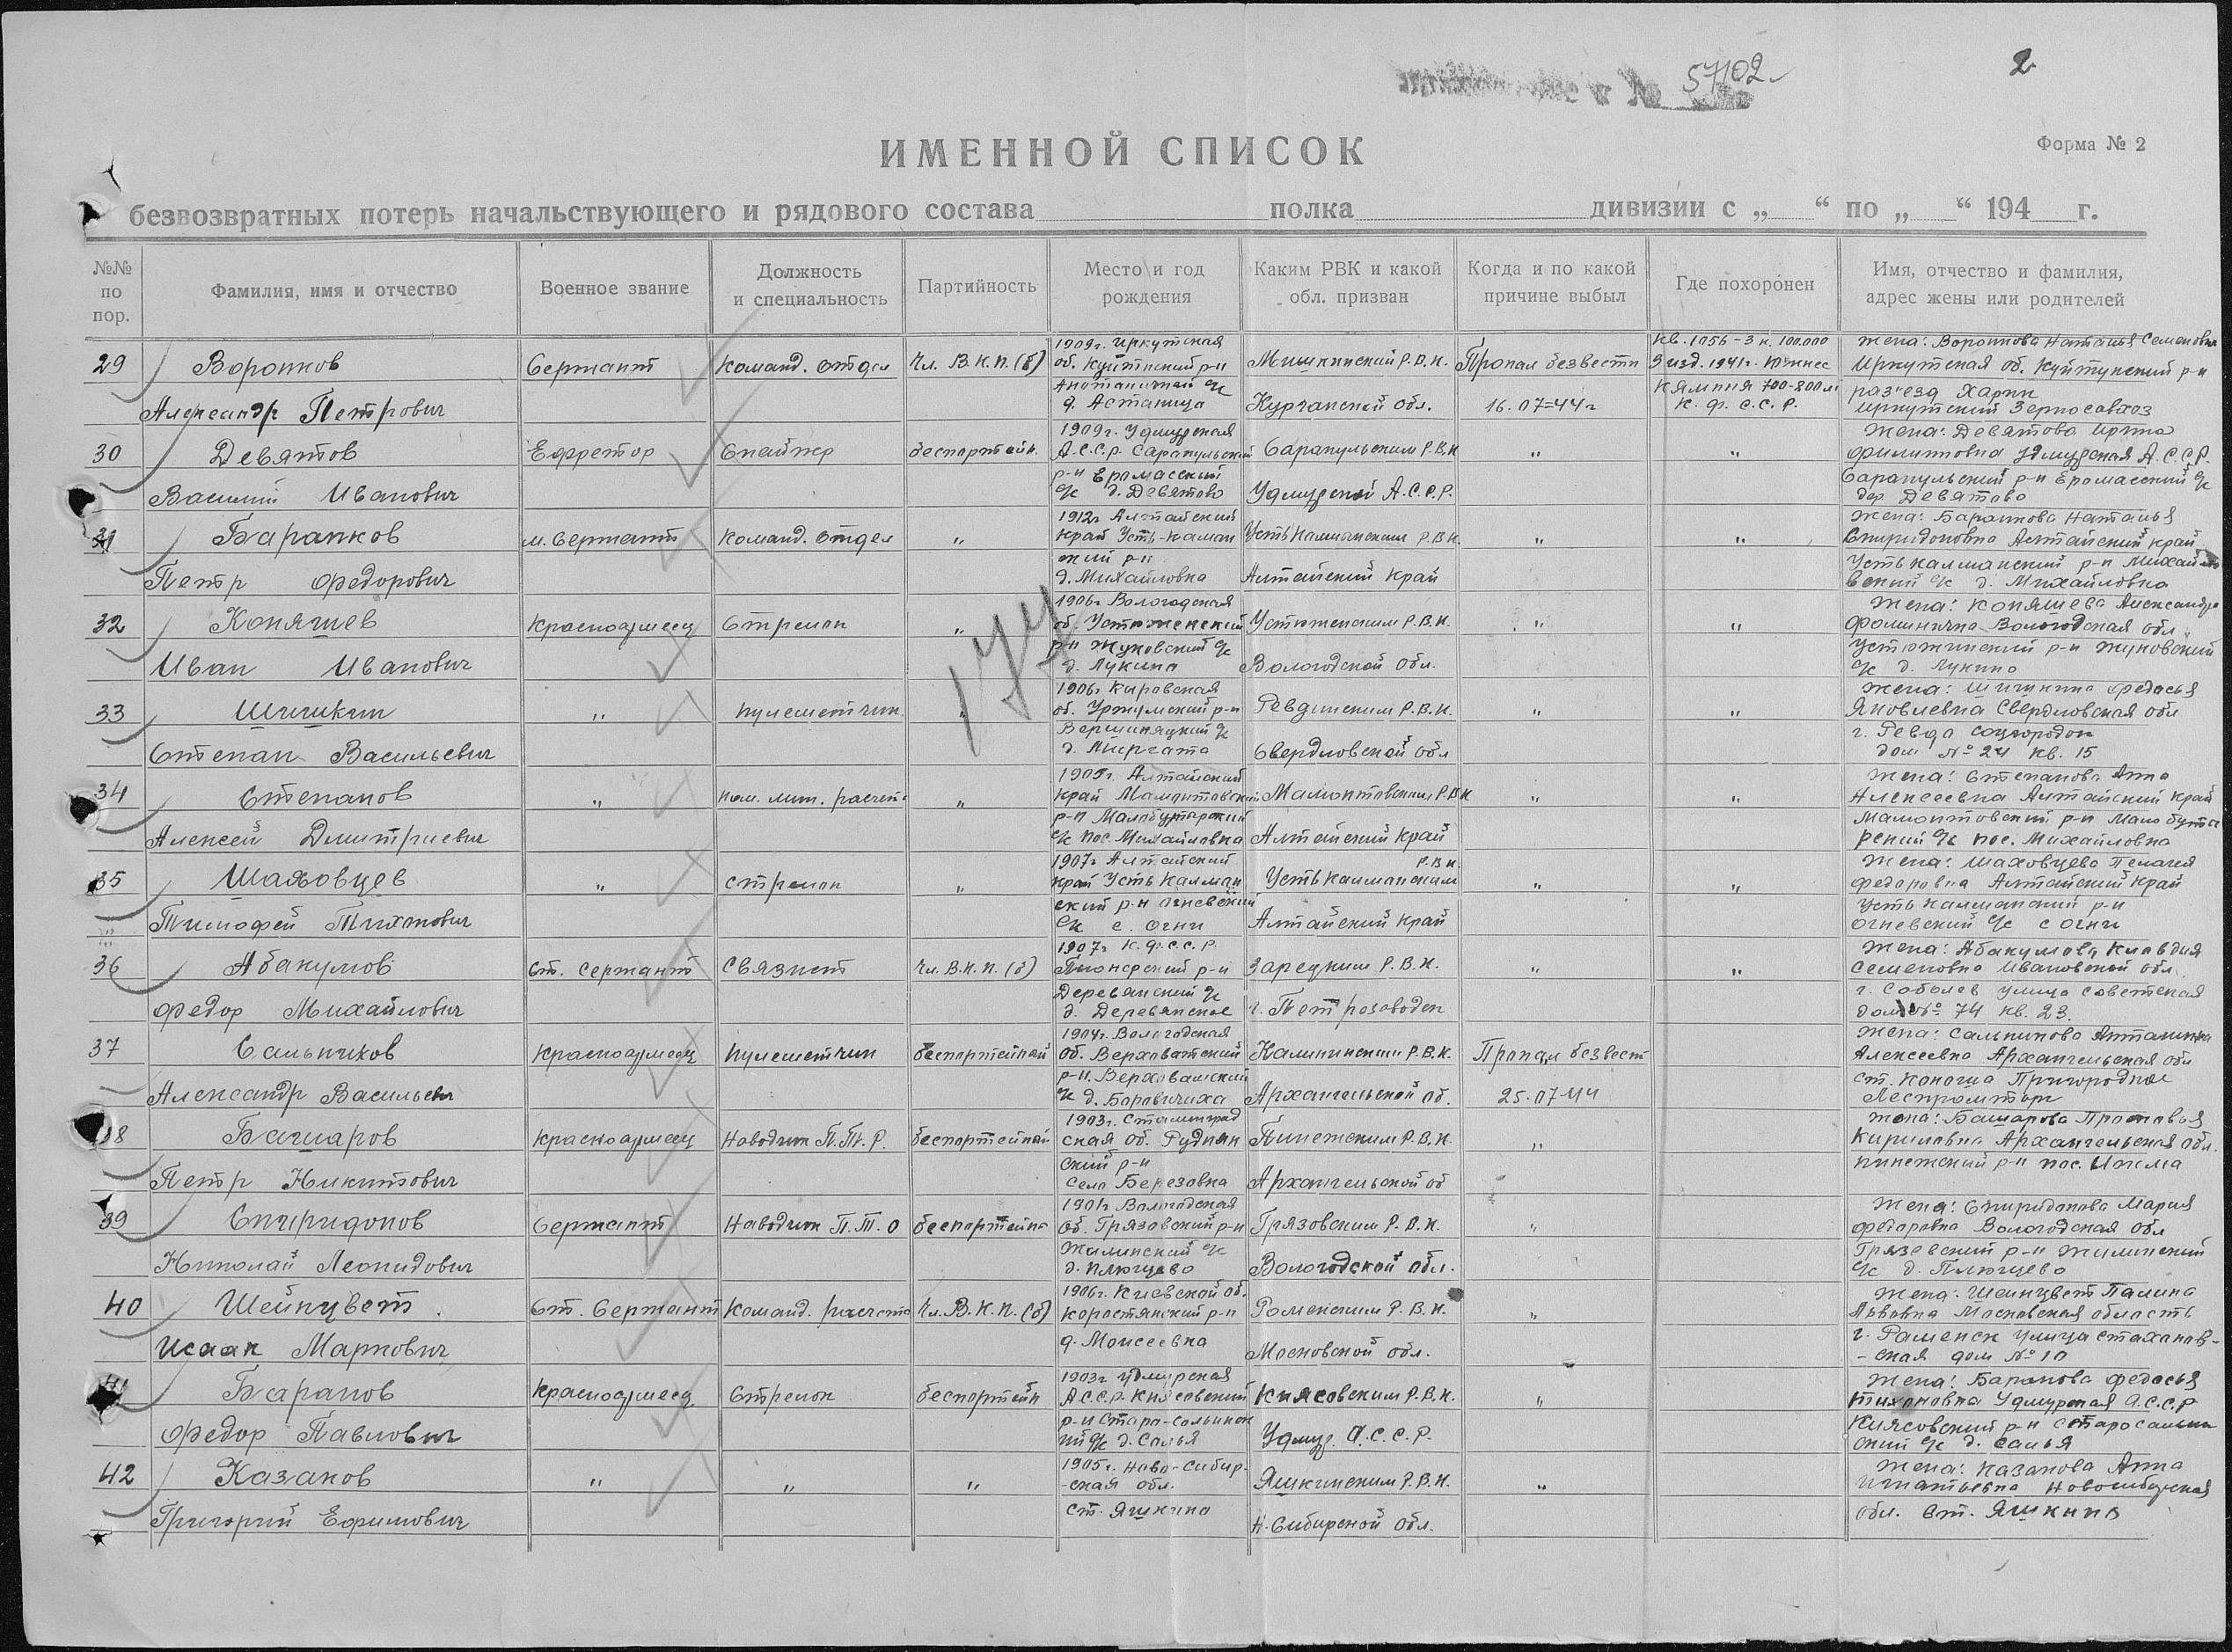 57102
2
ИМЕННОЙ СПИСОК
Форма № 2
безвозвратных потерь начальствующего и рядового состава полка дивизии с „ “ по „ “ 194 г.
№№ по пор.
Фамилия, имя и отчество
Военное звание
Должность и специальность
Партийность
Место и год рождения
Каким РВК и какой обл. призван
Когда и по какой причине выбыл
Где похоронен
Имя, отчество и фамилия, адрес жены или родителей
174
29 Воронков Сержант Команд. отдел Чл. В.К.П.(б) 1909г. Иркутская об. Куйтунский р-н Мишкинский Р.В.К. Пропал безвести Кв. 1056-3 к. 100.000 Жена: Воронкова Наталья Семеновна Иркутская об. Куйтунский р-н
Александр Петрович д. Астаница Курганской обл. 16.07=44г К.Ф.С.С.Р. раз'езд Харик Иркутский Зерносавхоз
30 Девятов Ефретор Снайпер беспортейн. 1909г. Удмурская А.С.С.Р. Сарапульский Сарапульским Р.В.К „ „ Жена: Девятова Ирина Филиповна Удмурская А.С.С.Р.
Василий Иванович р-н с/с д. Девятово Удмурской А.С.С.Р. Сарапульский р-н с/с дер. Девятово
31 Баранков м. Сержант Команд. Отдел „ 1912г Алтайский край Усть-калман Усть Калманским Р.В.К. „ „ Жена: Баранкова Наталья Спиридоновна Алтайский край
Петр Федорович ский р-н д. Михайловка Алтайский край Усть калманский р-н Михайло вский с/с д. Михайловка
32 Коняшев Красноармеец Стрелок „ 1906г Вологодская об. Устюженский Устюженским Р.В.К. „ „ Жена: Коняшева Александра Фоминична Вологодская обл.
Иван Иванович р-н Жуковский с/с д. Лукино Вологодской Обл. Устюжинский р-н Жуковский с/с д. Лукино
33 Шишкин „ пулеметчик „ 1906г Кировская об. Уржумский р-н Ревдинским Р.В.К. „ „ Жена: Шишкина Федосья Яковлевна Свердловская обл
Степан Васильевич с/с д. Свердловской обл г. Ревда Соцгородок дом № 24 кв. 15
34 Степанов „ пом. мин. расчет. „ Алтайский край Мамонтовский Мамонтовским Р.В.К „ „ Жена: Степанова Анна Алексеевна Алтайский край
Алексей Дмитриевич р-н с/с пос. Михайловка Алтайский край Мамонтовский р-н Мало бута рский с/с пос. Михайловка
35 Шаховцев „ Стрелок „ 1907г Алтайский край Усть Калман Усть Калманским Р.В.К. „ „ Жена: Шаховцева Пелагея Федоровна Алтайский край
Тимофей Тихонович ский р-н Огневский с/с с. Огни Алтайский край Усть Калманский р-н Огневский с/с с Огни
36 Абакумов Ст. Сержант Связист Чл. В.К.П.(б) 1907г К.Ф.С.С.Р. Пионерский р-н Зарецким Р.В.К. „ „ Жена: Абакумова Клавдия Семеновна Ивановской обл.
Федор Михайлович Деревянский с/с д. Деревянское г. Петрозаводск г. Соболев улица Советская дом № 74 кв. 23.
37 Сальников Красноармеец пулеметчик беспортейный 1904г. Вологодская об. Верховатский Калининским Р.В.К. Пропал безвест Жена: Сальникова Алексеевна Архангельская обл
Александр Васильевич р-н. Верховатский с/с д. Боровичиха Архангельской об. 25.07-44 ст. Коноша Пригородное Леспромторг
38 Башаров красноармеец Наводчик П.Т.Р. беспортейный 1903г. Сталинград ская об. Руднян Пинежским Р.В.К. „ Жена: Башарова Кириловна Архангельская обл.
Петр Никитович ский р-н Село Березовка Архангельской об пинежский р-н пос. Ижма
39 Спиридонов Сержант Наводчик П.Т.О беспортейно 1901г Вологодская об. Грязовский р-н Грязовским Р.В.К. „ Жена: Спиридонова Мария Федоровна Вологодская обл
Николай Леонидович Жилинский с/с д. Плющево Вологодской обл. Грязевский р-н Жилинский с/с д. Плющево
40 Шейнцвет Ст. Сержант Команд. расчета Чл. В.К.П.(б) 1906г. Киевской об. коростянский р-н Раменским Р.В.К. „ Жена: Шейнцвет Галина Львовна Московская область
Исаак Маркович д. Моисеевка Московской обл. г. Раменск улица Стаханов- -ская дом № 10
41 Баранов Красноармеец Стрелок беспортейн 1903г Удмурская А.С.С.Р. Киясовский Киясовским Р.В.К. „ Жена: Баранова Федосья Тихоновна Удмурская А.С.С.Р
Федор Павлович р-н Старо-Сальинск ий с/с д. Салья Удмур. А.С.С.Р. Киясовский р-н Старосальин ский с/с д. Салья
42 Казаков „ „ „ 1905г. Ново-Сибир- -ская обл. Яшкинским Р.В.К. „ Жена: Казакова Анна Игнатьевна Новосибирская
Григорий Ефимович ст. Яшкино Н-Сибирской обл. обл. ст. Яшкино